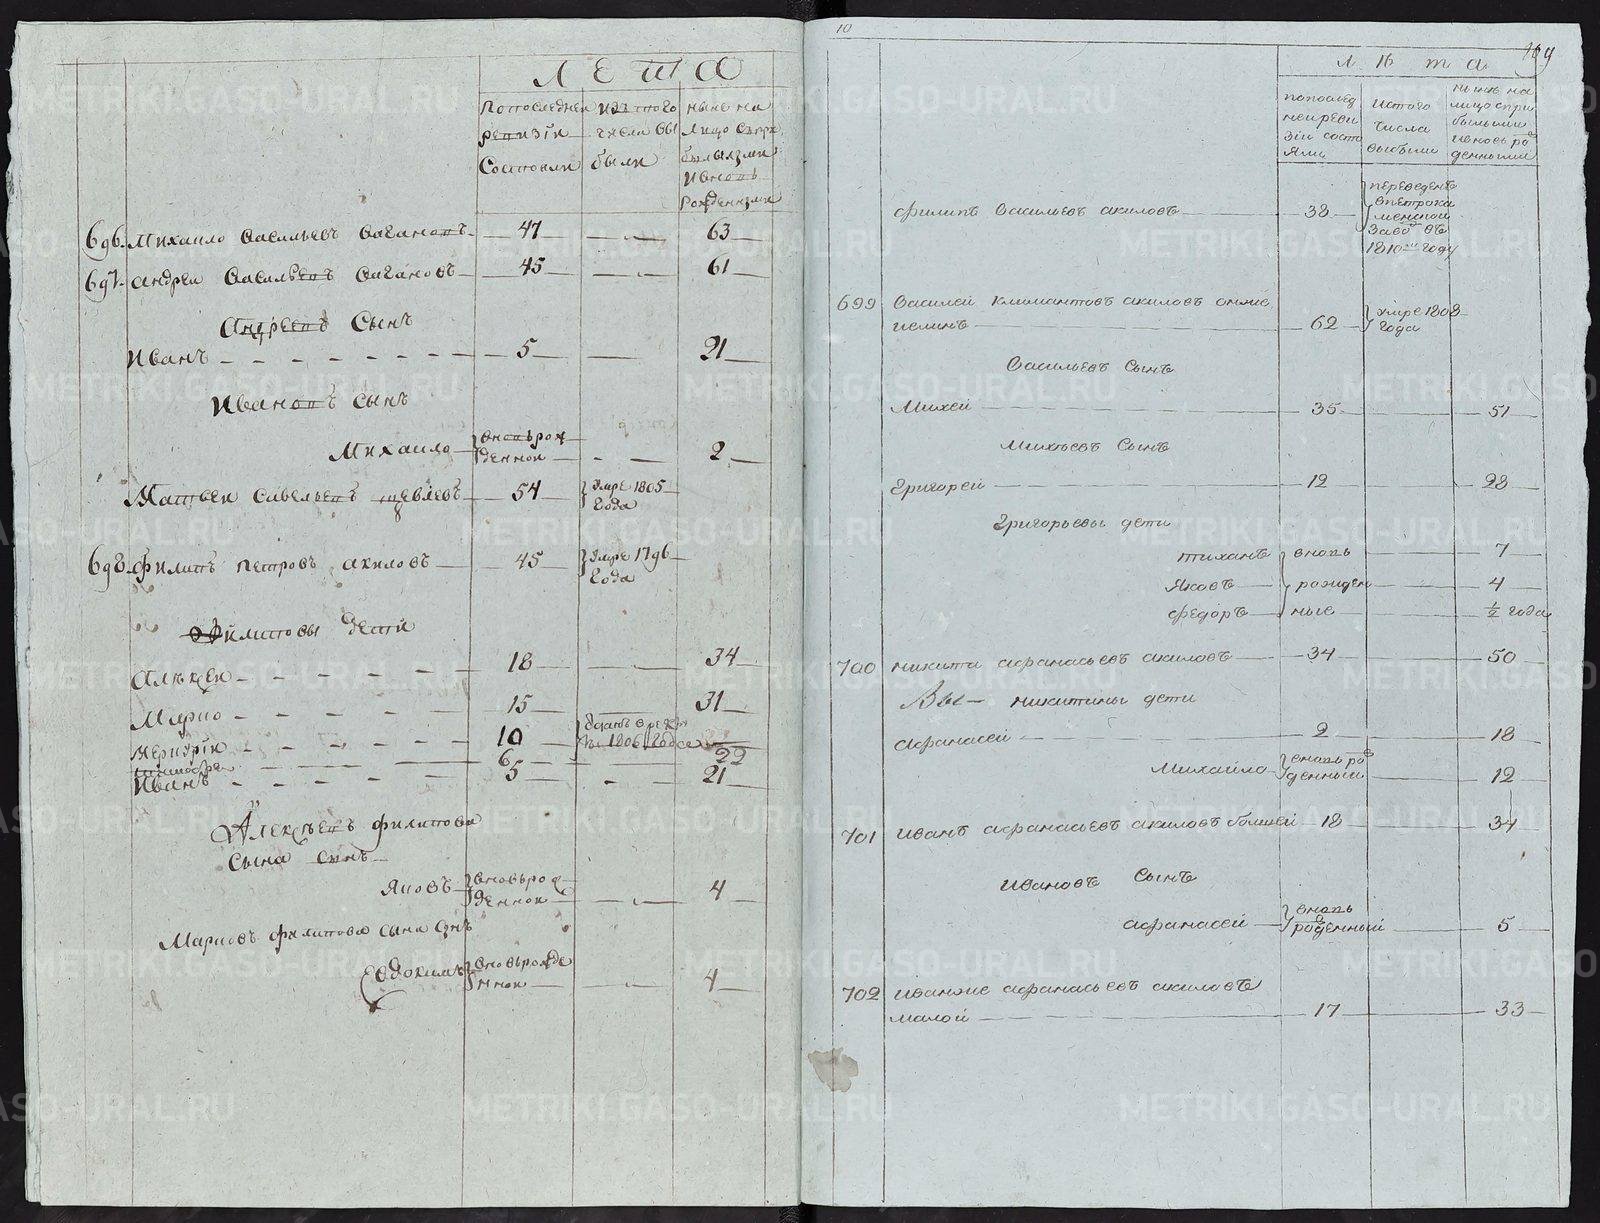 Лета
Попоследней
ревизіи
Состояли
изтого
числа вы
были
ныне на
Лицо съпри
былыми
Ивновь
Рожденными
696. Михаило Васильевъ Вагановъ 47 63
697. андреи Васильевъ Вагановъ 45 61
Андреевъ Сынъ
Иванъ 5 21
Ивановъ сынъ
Михаило вновьрож
денной 2
Матвеи Савельевъ 54 Умре 1805
Года
698. Филипъ Петровъ акиловъ 45 Умре 1796
Года
Филиповы дети
Алѣксеи 18 34
Марко 15 31
10 1806 года
6 22
Иванъ 5 21
Алексѣевъ филипова
Сына сынъ
Яковъ вновьрож
денной 4
Марковъ филипова сына сынъ
Евдокимъ вновьрожде
нной 4
10
109
лѣта
попослед
нейреви
зіи состо
яли
истого
числа
выбыли
нынѣ на
лицо спри
былыми
ивновь ро
жденными
филипъ васильевъ акиловъ 38 переведенъ
впетрока
менской
заводъ въ
1810м году
699 Василей климантовъ акиловъ онже
62 умре 1808
года
Васильевъ сынъ
Михей 35 51
Михѣевъ сынъ
Григорей 12 28
Григорьевы дети
тиханъ вновь 7
Яковъ рожден 4
федоръ ные ½ года
700 никита афанасьевъ акиловъ 34 50
никитины дети
афанасей 2 18
Михайло вновь рож
денный 12
701 иванъ афанасьевъ акиловъ болшей 18 34
ивановъ сынъ
афанасей вновь
рожденный 5
702 иванже афанасьевъ акиловъ
малой 17 33
METRIKI.GASO-URAL.RU